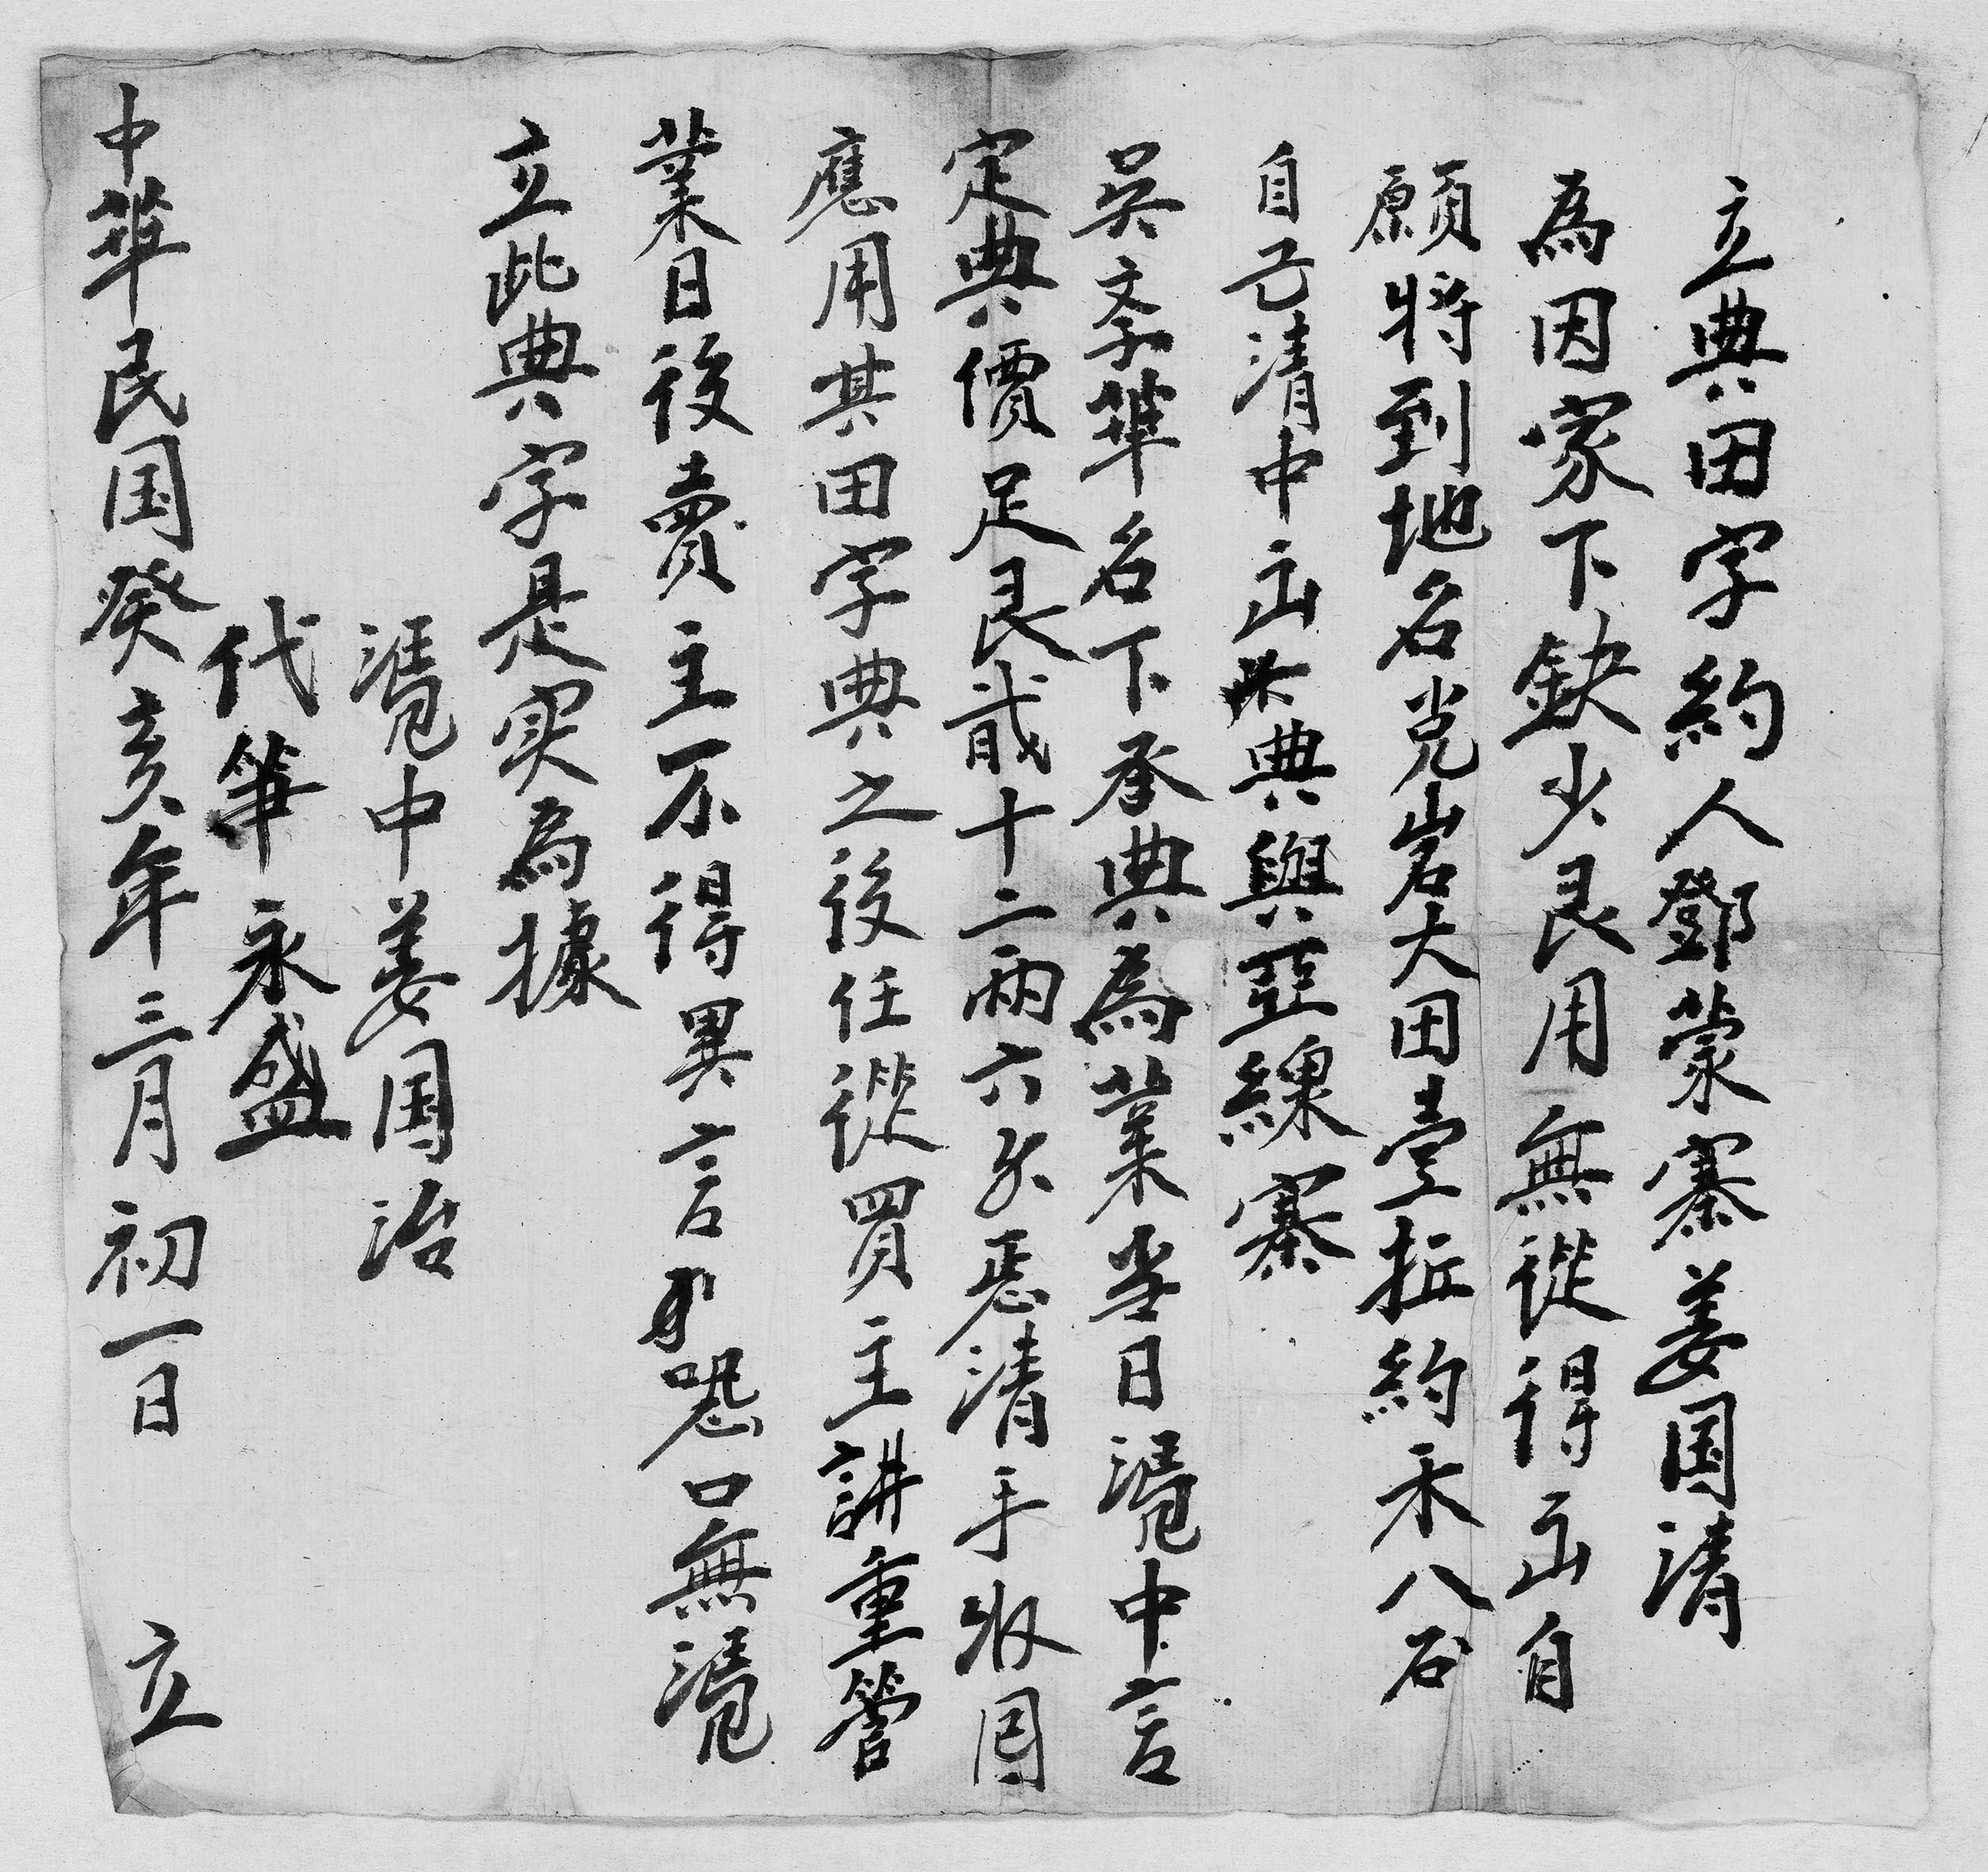 立典田字約人鄧蒙寨姜国清
為因家下缺少艮用無從得出自
願將到地名党岩大田壹坵約禾八石
自己清中出典與亞線寨
吳文學華名下承典為業当日憑中言
定典價足艮貳十二兩六分悉清手收囬
應用其田字典之後任從買主耕重管
業日後賣主不得異言恐口無憑
立此典字是实為據
憑中姜国治
代筆永盛
中華民国癸亥年三月初一日 立